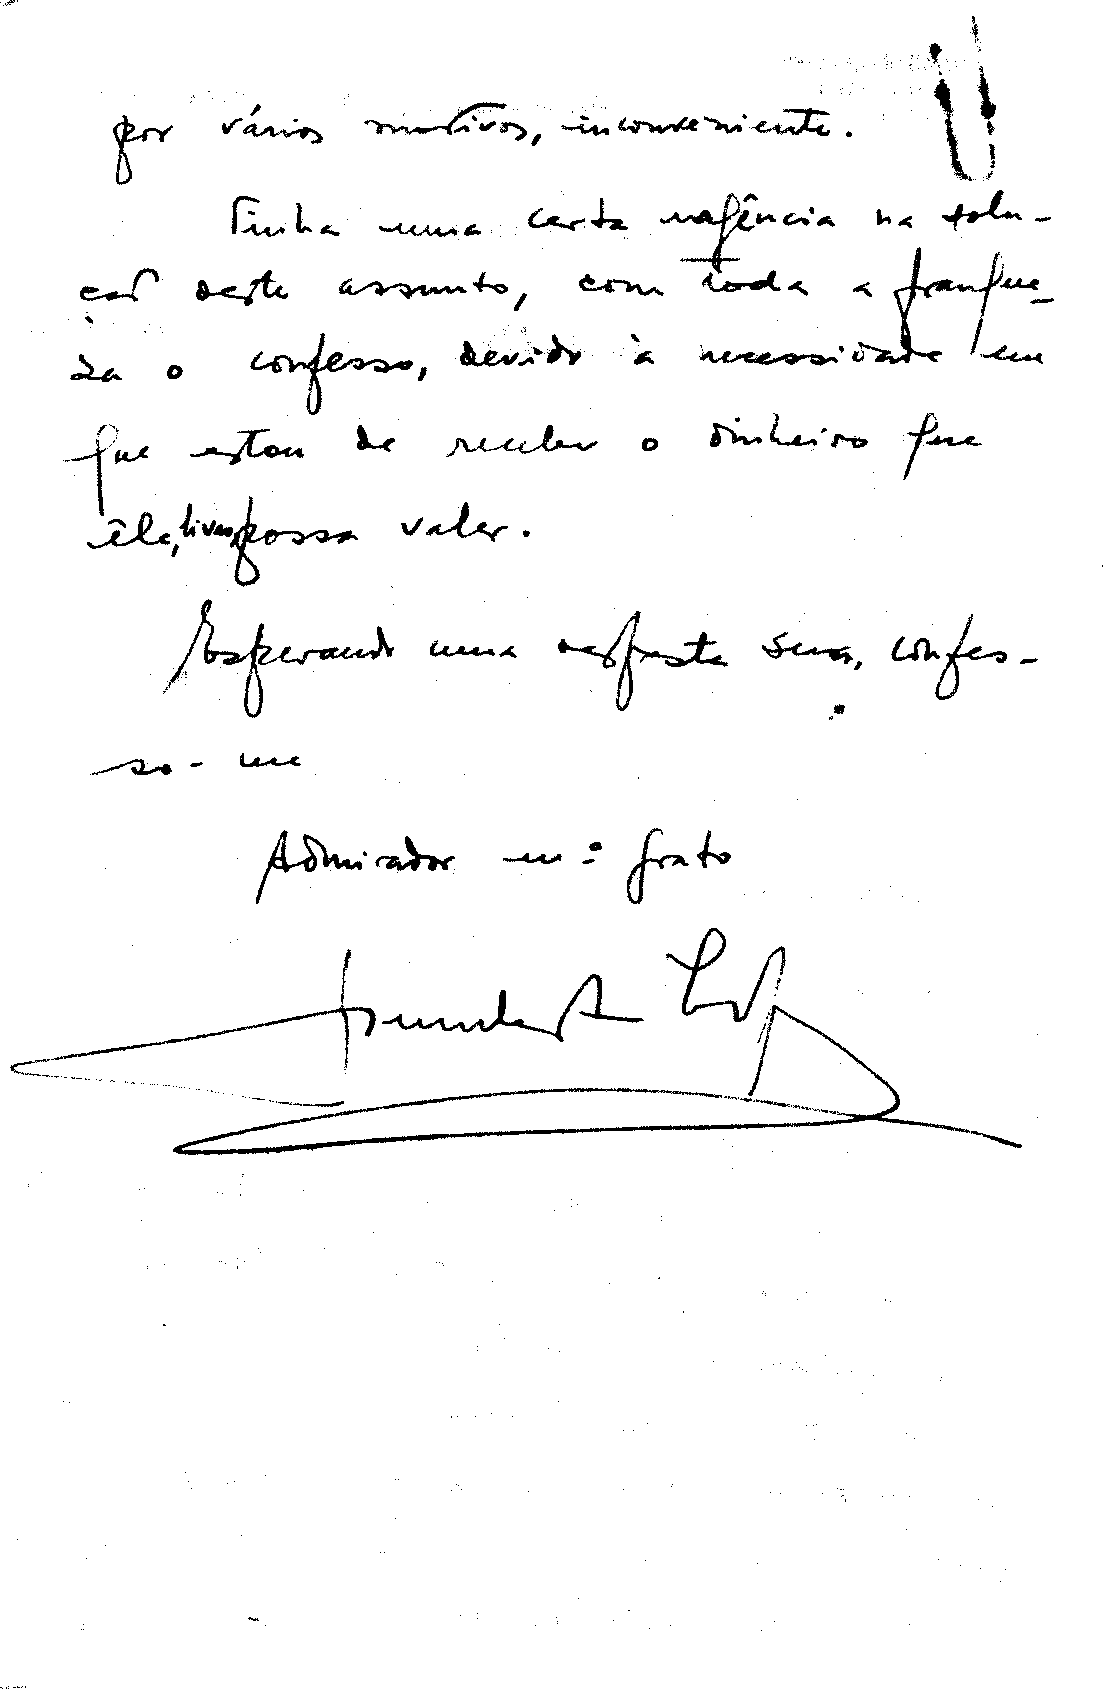 por vários motivos, inconveniente.
Tinha uma certa urgência na solu-
ção deste assunto, com toda a franque-
za o confesso, devido à necessidade em
que estou de receber o dinheiro que
êle, livro, possa valer.
Esperando uma resposta sua, confes-
so-me
Admirador m.º grato